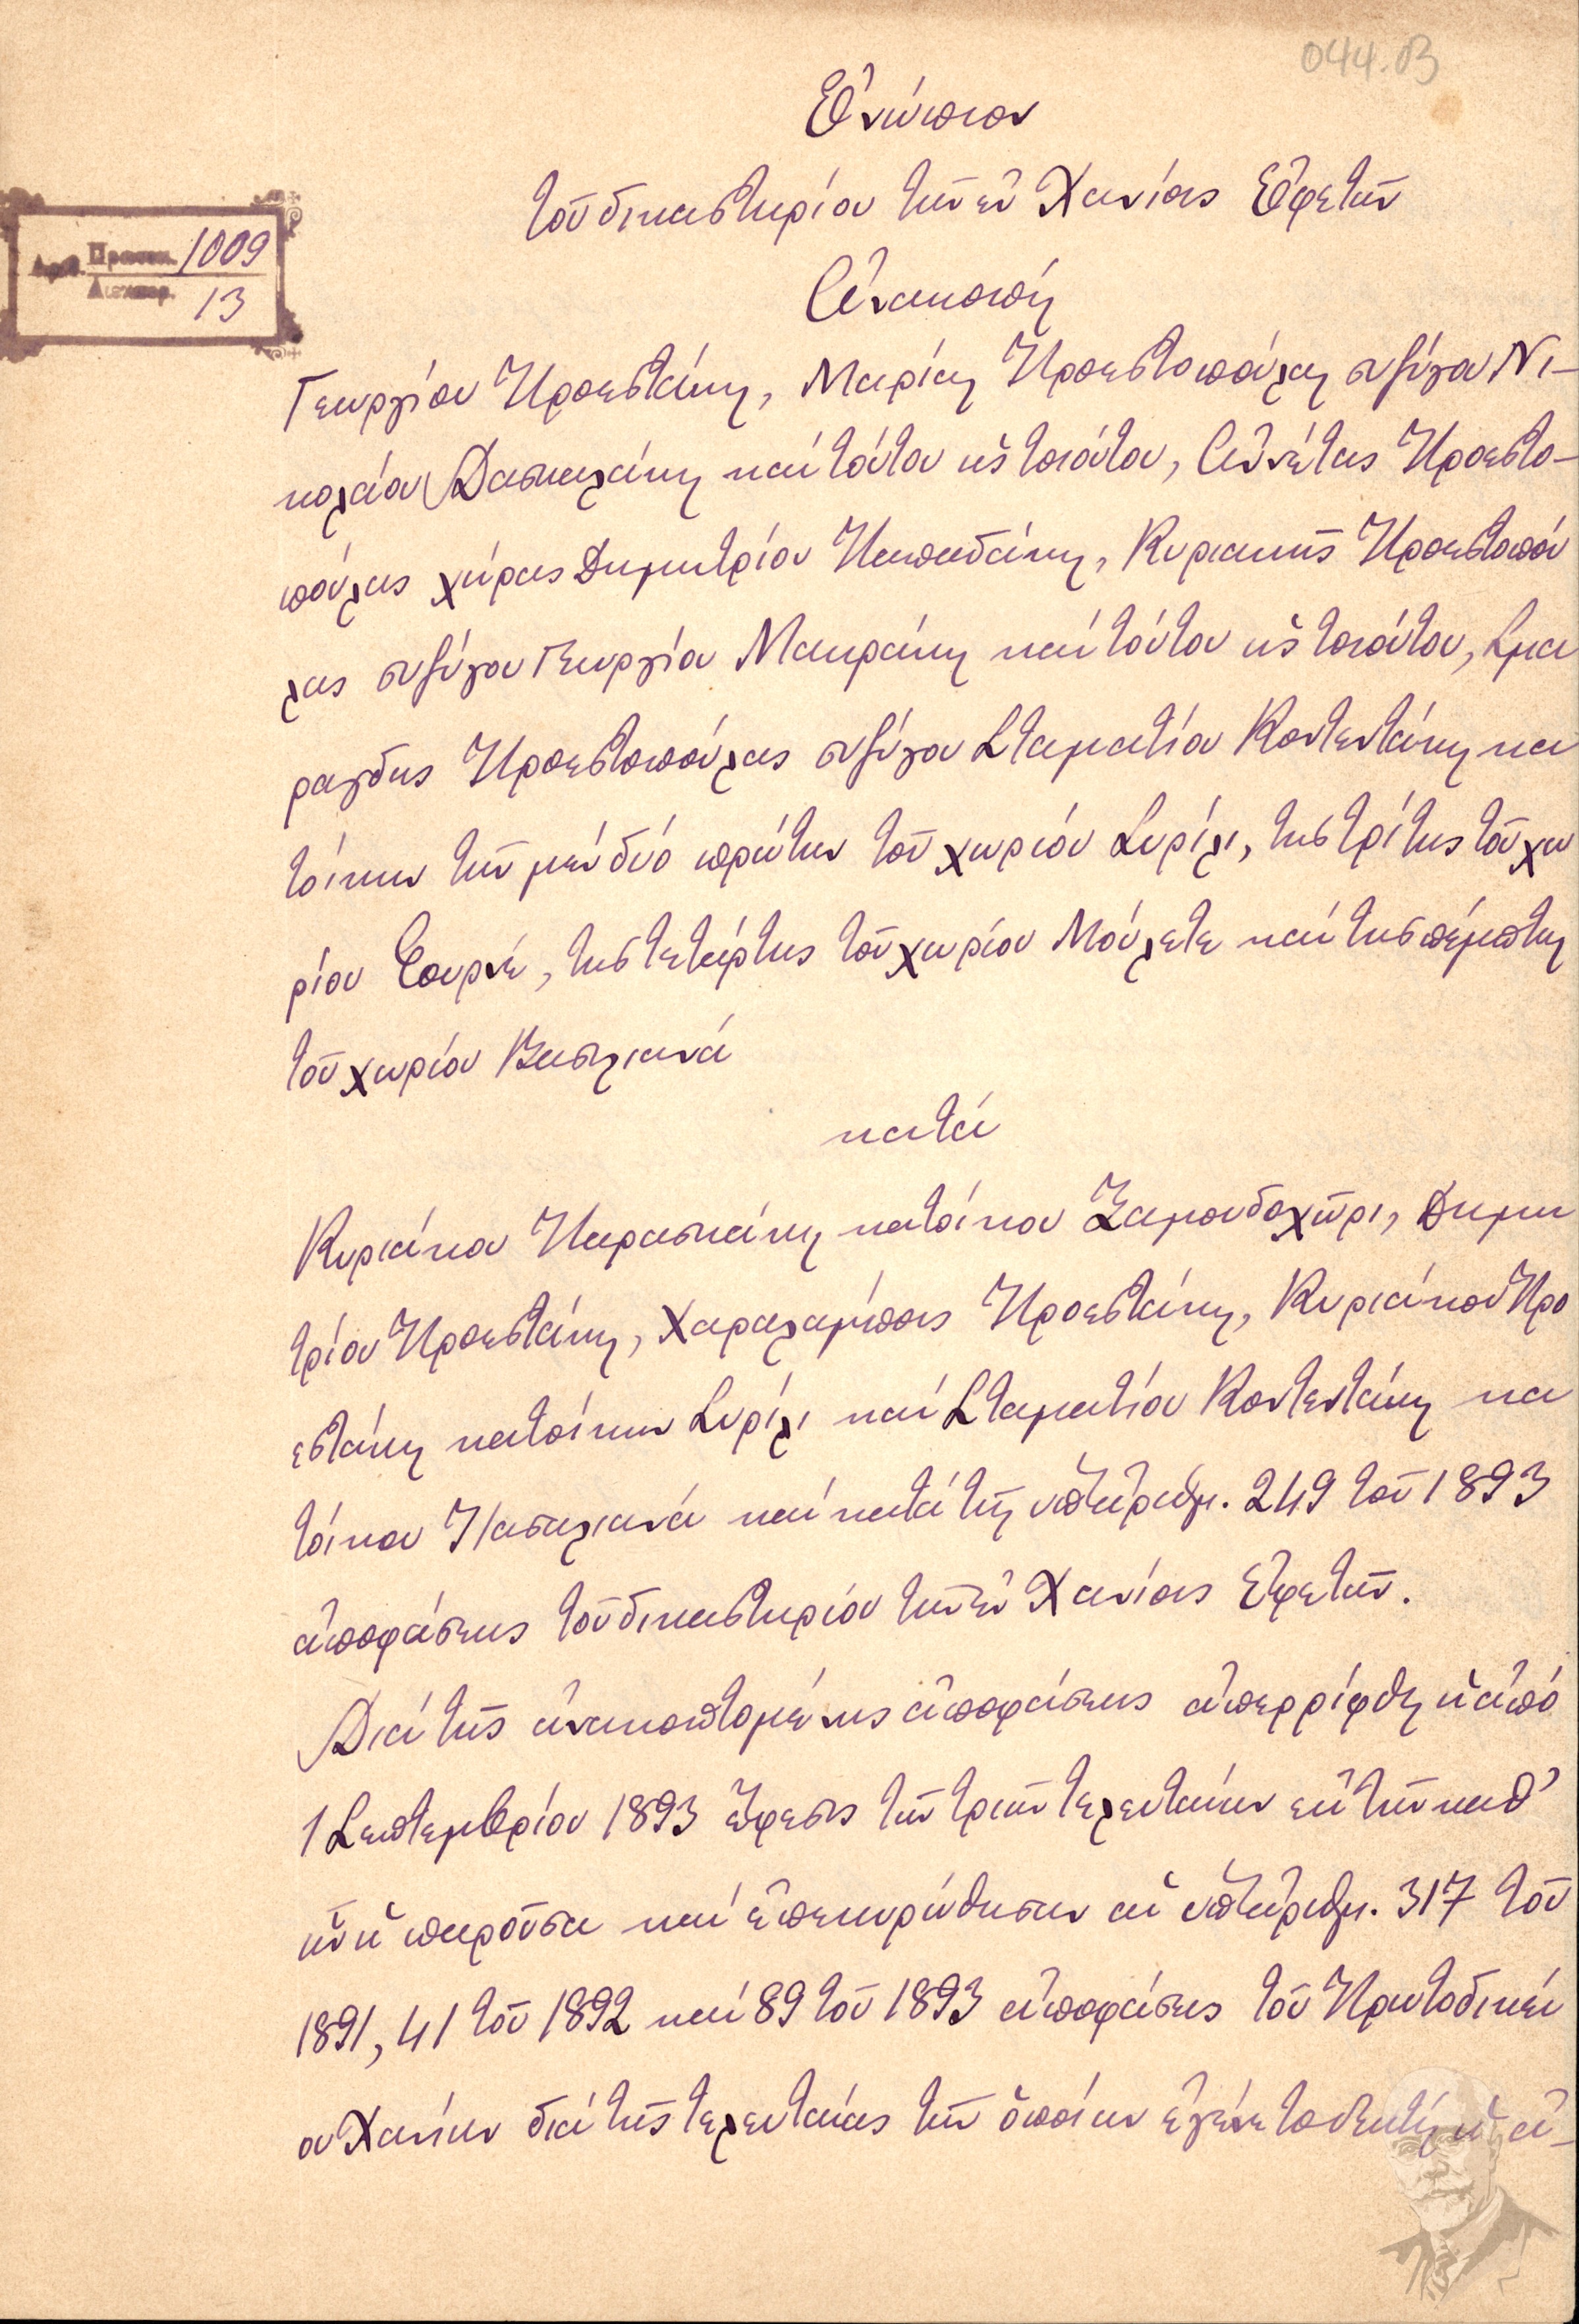 044.03
Ἐνώπιον
τοῦ δικαστηρίου τῶν ἐν Χανίοις Ἐφετῶν
Ἀριθ. Πρωτοκ. 1009
Διεκπερ. 13
Ἀνακοπὴ
Γεωργίου Προεστάκη, Μαρίας Προεστοπούλας συζύγου Νι-
κολάου Δασκαλάκη καὶ τούτου ὡς τοιούτου, Ἀννέτας Προεστο-
πούλας χήρας Δημητρίου Παπαδάκη, Κυριακῆς Προεστοπού
λας συζύγου Γεωργίου Μακράκη καὶ τούτου ὡς τοιούτου, Σμα
ράγδης Προεστοπούλας συζύγου Σταματίου Κοντεντάκη κα
τοίκων τῶν μὲν δύο πρώτων τοῦ χωρίου Συρίλι, τῆς τρίτης τοῦ χω
ρίου Φουρνέ, τῆς τετάρτης τοῦ χωρίου Μούλετε καὶ τῆς πέμπτης
τοῦ χωρίου Βασιλιανά
κατὰ
Κυριάκου Παρασκάκη κατοίκου Ξαμουδοχῶρι, Δημη
τρίου Προεστάκη, Χαραλάμπους Προεστάκη, Κυριάκου Προ
εστάκη κατοίκων Συρίλι καὶ Σταματίου Κοντεντάκη κα
τοίκου καὶ κατὰ τῆς ὑπ' ἀριθμ. 249 τοῦ 1893
ἀποφάσεως τοῦ δικαστηρίου τῶν ἐν Χανίοις Ἐφετῶν.
Διὰ τῆς ἀνακοπτομένης ἀποφάσεως ἀπερρίφθη ἡ ἀπὸ
1 Σεπτεμβρίου 1893 ἔφεσις τῶν τριῶν τελευταίων ἐκ τῶν καθ'
ὧν ἡ παροῦσα καὶ ἐπεκυρώθησαν αἱ ὑπ' ἀριθμ. 317 τοῦ
1891, 41 τοῦ 1892 καὶ 89 τοῦ 1893 ἀποφάσεις τοῦ Πρωτοδικεί
ου Χανίων διὰ τῆς τελευταίας τῶν ὁποίων ἐγένετο δεκτὴ ἡ ἀ-